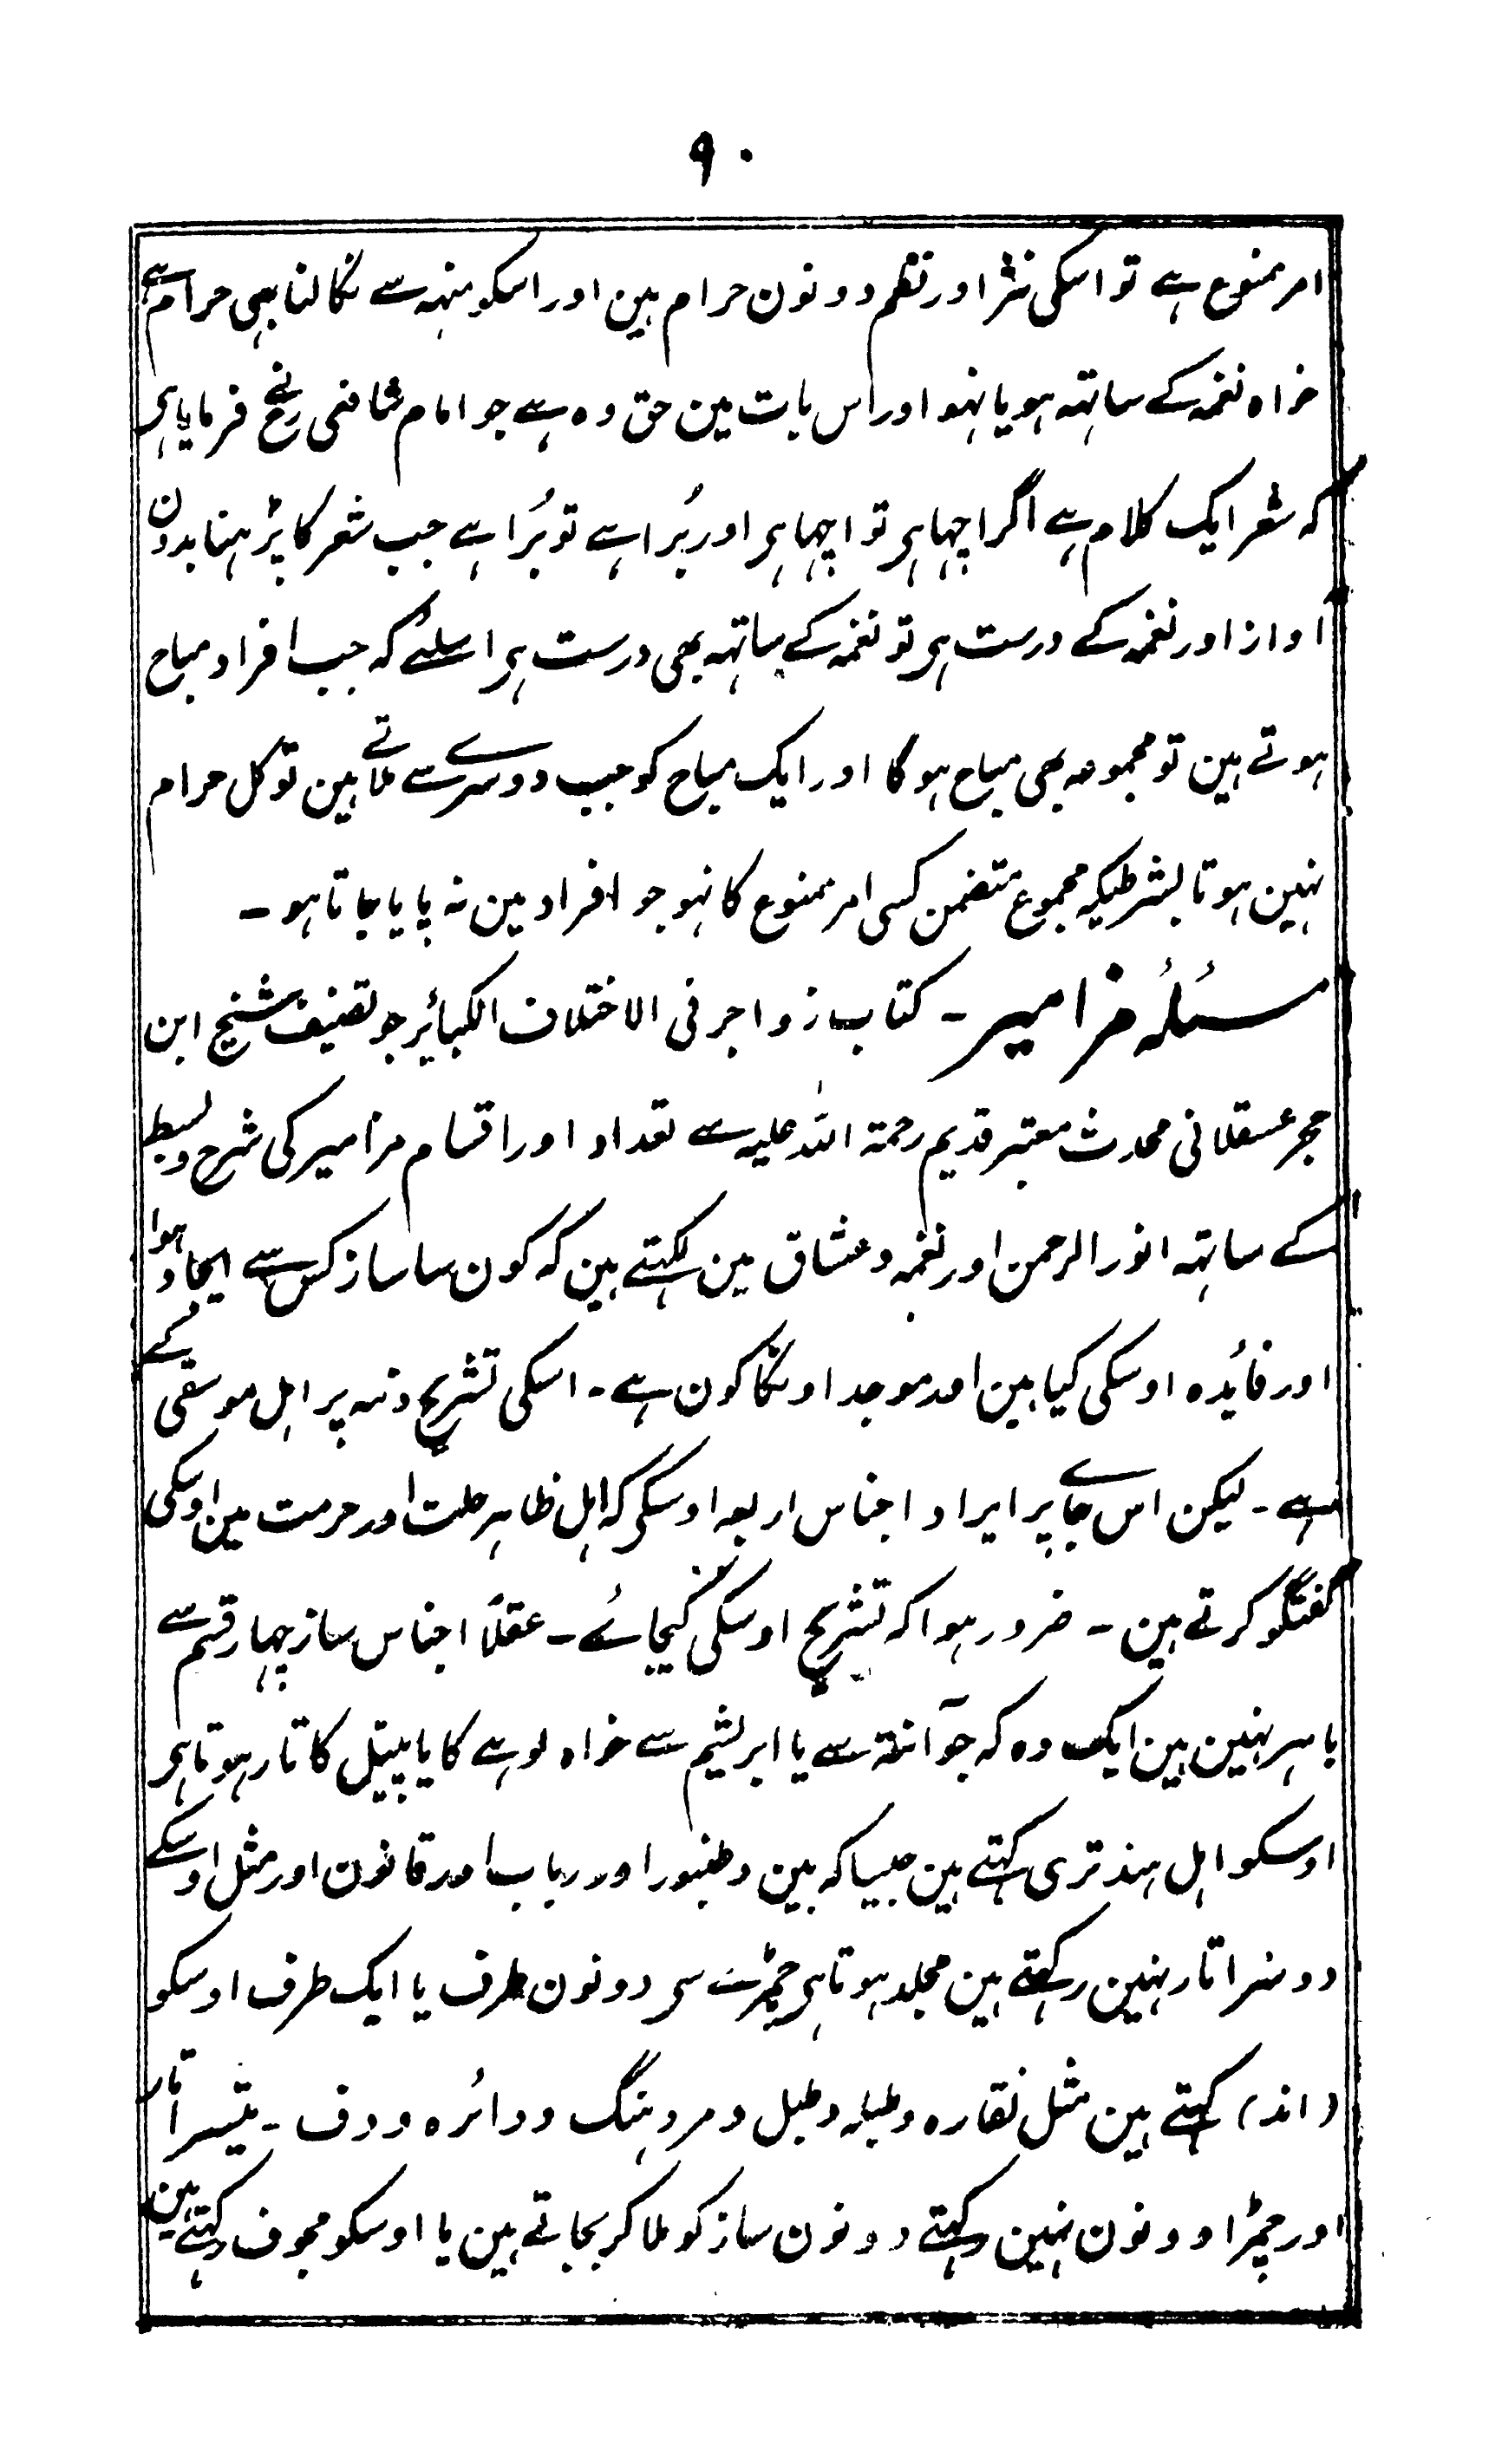 ۹۰
امر ممنوع ہے تو اسکی نثر اور نظم دونون حرام ہین اور اسکو منہہ سے نکالنا بہی حرام ہے
خواہ نغمہ کے ساتہہ ہو یا نہو اور اس بات مین حق وہ ہے جو امام شافعی رح نے فرمایا ہی
کہ شعر ایک کلام ہے اگر اچہا ہی تو اچہا ہی اور بُرا ہے تو بُرا ہے جب شعر کا پڑہنا بدون
آواز اور نغمہ کے درست ہی تو نغمہ کے ساتہہ بھی درست ہی اسلئے کہ جب افراد مباح
ہوتے ہین تو مجموعہ بھی مباح ہو گا اور ایک مباح کو جب دوسرے سے ملاتے ہین تو کل حرام
نہین ہوتا بشرطیکہ مجموع متضمن کسی امر ممنوع کا نہو جو افراد مین نہ پایا جاتا ہو ۔
مسئلہ مزامیر ۔ کتاب زواجر فی الاختلاف الکبائر جو تصنیف شیخ ابن
حجر عسقلانی محدث معتبر قدیم رحمۃ اللہ علیہ سے تعداد اور اقسام مزامیر کی شرح و بسط
کے ساتہہ انور الرحمن اور نغمہ و عشاق مین لکہتے ہین کہ کون سا ساز کس سے ایجاد ہوا
اور فائدہ اوسکی کیا ہین اور موجد اونکا کون ہے ۔ اسکی تشریح ذمہ پر اہل موسقی کے
ہے ۔ لیکن اس جاے پر ایراد اجناس اربعہ اوسکی کہ اہل ظاہر حلت اور حرمت مین اوسکی
گفتگو کرتے ہین ۔ ضرور ہوا کہ تشریح اوسکی کیجائے ۔ عقلاً اجناس ساز چہار قسم سے
باہر نہین ہین ایک وہ کہ جو آنتہ سے یا ابریشم سے خواہ لوہے کا یا پیتل کا تار ہوتا ہی
اوسکو اہل ہند تری کہتے ہین جیسا کہ بین و طنبور اور رباب اور قانون اور مثل اوسکے
دوسرا تار نہین رکہتے ہین مجلد ہوتا ہی چمڑے سی دونون طرف یا ایک طرف اوسکو
(اند) کہتے ہین مثل نقارہ و طبلہ و طبل و مردہنگ و دائرہ و دف ۔ تیسرا تار
اور چمڑا دونون نہین رکہتے دونون ساز کو ملا کر بجاتے ہین یا اوسکو مجوف رکہتے ہین